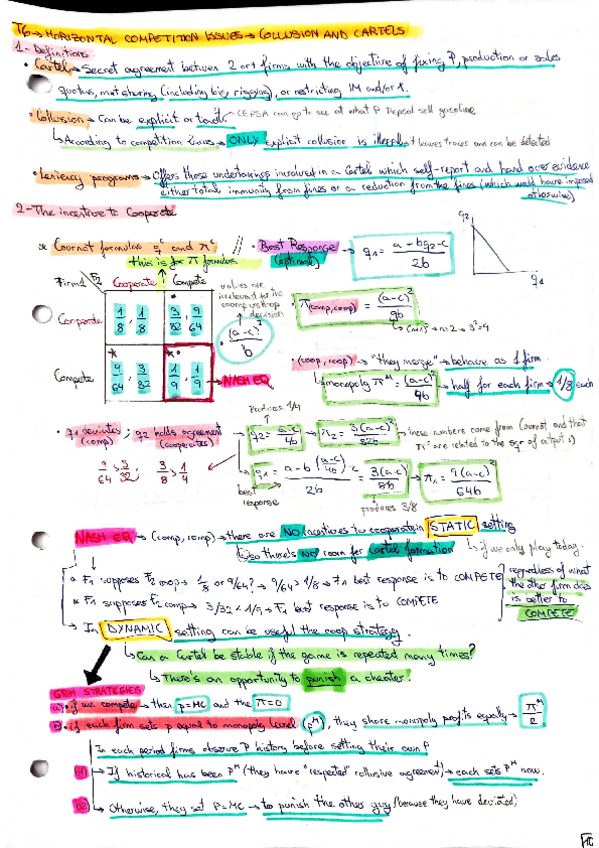 T6→ HORIZONTAL COMPETITION ISSUES → COLLUSION AND CARTELS
1- Definitions
• Cartel → Secret agreement between 2 or + firms with the objective of fixing P, production or sales
quotas, mkt sharing (including big rigging), or restricting IM and/or 1.
• Collusion → Can be explicit or tacit → CEPSA can go to see at what P Repsol sell gasoline
↳ According to competition laws → ONLY explicit collusion is illegal, it leaves traces and can be detected
• Leniency programs → Offers those undertakings involved in a cartel which self-report and hand over evidence
either total immunity from fines or a reduction from the fines (which would have imposed
otherwise)
2- The incentive to Cooperate
* Cournot formulas q^c and π^c // Best Response (optimate) → q1 = a - bq2 - c / 2b
this is for π formulas
q2
q1
Firm 1 F2 Cooperate Compete
Cooperate 1/8 , 1/8 3/32 , 9/64
Compete 9/64 , 3/32 1/9 , 1/9 → NASH EQ
values are irrelevant for the decision
• (a-c)² / b
• π(comp,comp) = (a-c)² / 9b
↳ (n+1)² → n=2 → 3²=9
• (coop, coop) → "they merge" → behave as 1 firm
↳ monopoly π^M = (a-c)² / 4b → half for each firm → 1/8 each
• q1 deviates (comp) ; q2 holds agreement (cooperates)
Produces 1/4
→ q2 = a-c / 4b → π2 = 3(a-c)² / 32b → these numbers come from Cournot and that
π are related to the sqr of output
9/64 > 3/32 ; 3/8 > 1/4
→ q1 = a - b(a-c / 4b) - c / 2b = 3(a-c) / 8b → π1 = 9(a-c)² / 64b
best response
produces 3/8
NASH EQ → (comp, comp) → there are NO incentives to cooperate in STATIC setting
↳ so there's NO room for Cartel formation ↳ if we only play today
* F1 supposes F2 coop → 1/8 or 9/64? → 9/64 > 1/8 → F1 best response is to COMPETE
* F1 supposes F2 comp → 3/32 < 1/9 → F1 best response is to COMPETE
regardless of what the other firm does is better to COMPETE
→ In DYNAMIC setting can be useful the coop strategy.
↳ Can a Cartel be stable if the game is repeated many times?
↳ There's an opportunity to punish a cheater?
GRIM STRATEGIES
a) • if we compete → then p=MC and the π=0
b) • if each firm sets p equal to monopoly level (p^M), they share monopoly profits equally → π^M / 2
In each period firms observe P history before setting their own P
b1) → If historical has been P^M (they have "respected" collusive agreement) → each sets P^M now.
b2) → Otherwise, they set P=MC → to punish the other guy (because they have deviated)